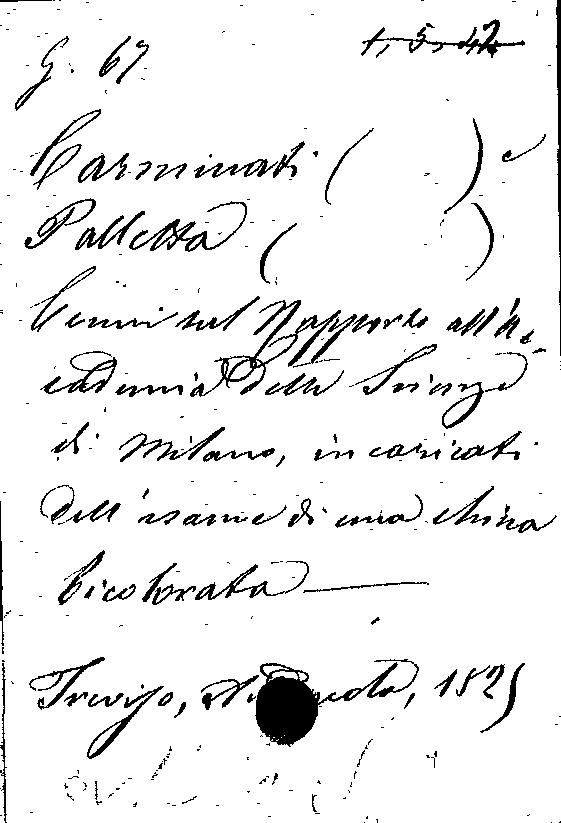 G. 67 1, 5, 42
Carminati ( ) e
Palletta ( )
Cenni sul Rapporto all'Ac-
cademia delle Scienze
di Milano, incaricati
dell'esame di una china
bicolorata —
Treviso, 1825